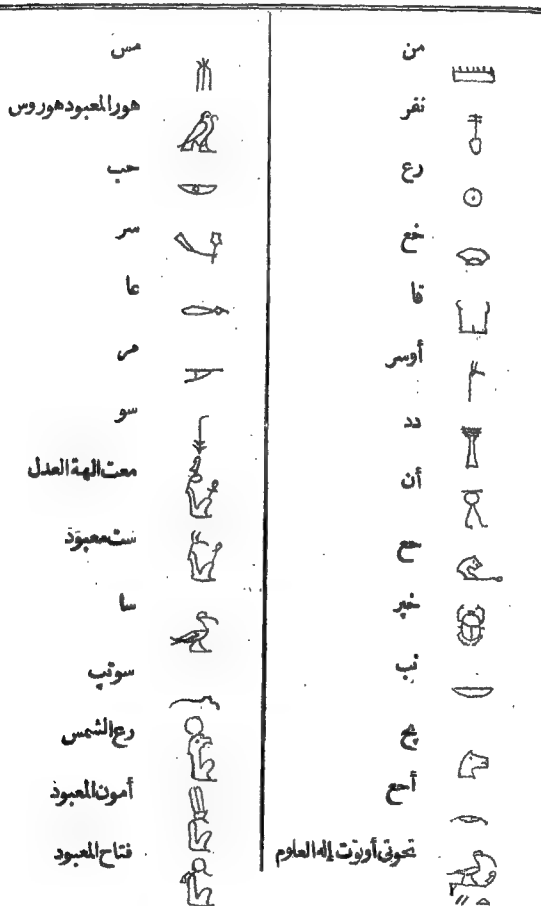 من
نفر
رع
خع
قا
أوسر
دد
أن
حع
خپر
نب
پح
أحع
تحوتى أوتوت إله العلوم
مس
هور المعبود هوروس
حب
سر
عا
مر
سو
معت الهة العدل
ست معبود
سا
سوتپ
رع الشمس
أمون المعبود
فتاح المعبود